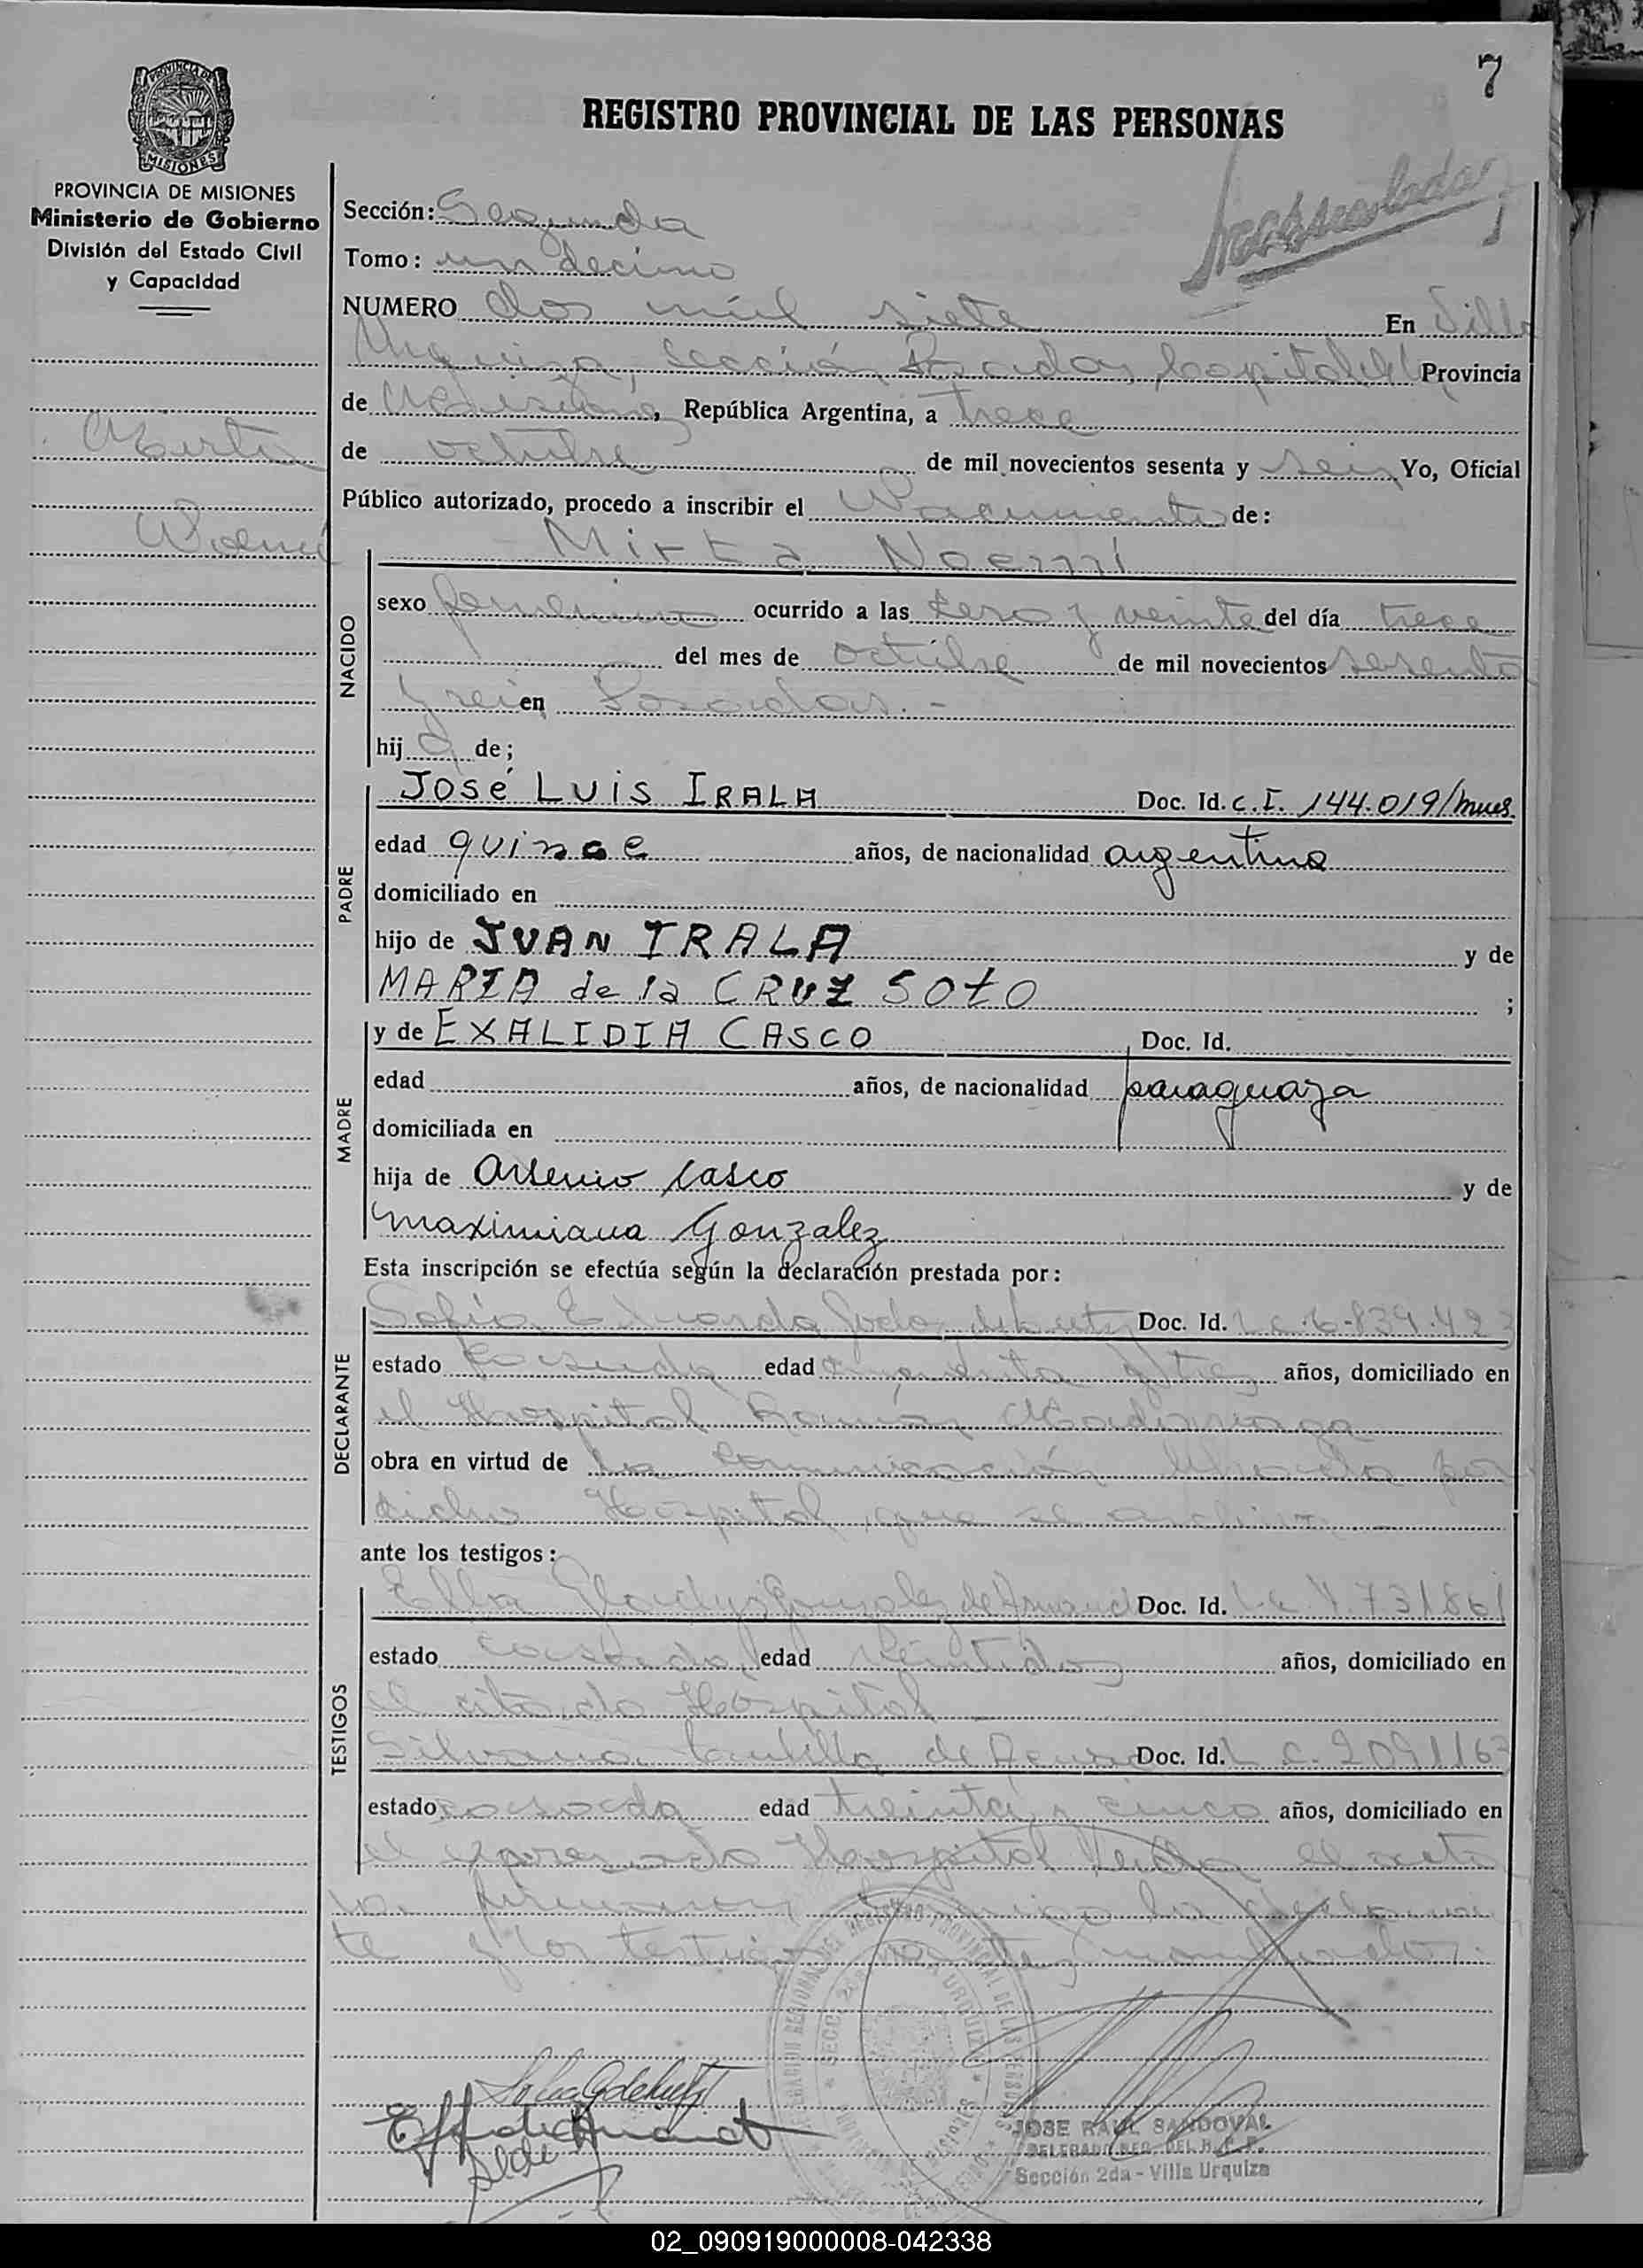 7
REGISTRO PROVINCIAL DE LAS PERSONAS
PROVINCIA DE MISIONES
PROVINCIA DE MISIONES
Ministerio de Gobierno
División del Estado Civil
y Capacidad
Sección: Segunda
Tomo: undecimo
NUMERO dos mil siete En Villa
Urquiza, Sección Posadas, Capital de la Provincia
de Misiones, República Argentina, a trece
de octubre de mil novecientos sesenta y seis Yo, Oficial
Público autorizado, procedo a inscribir el Nacimiento de:
Mirta
Noemí
Mirta Noemí
NACIDO
sexo femenino ocurrido a las cero y veinte del día trece
del mes de octubre de mil novecientos sesenta
y seis en Posadas.-
hij a de;
PADRE
José Luis IRALA Doc. Id. C.I. 144.019/
edad quince años, de nacionalidad argentina
domiciliado en
hijo de JUAN IRALA y de
MARIA de la CRUZ SOTO ;
MADRE
y de EXALIDIA CASCO Doc. Id.
edad años, de nacionalidad paraguaya
domiciliada en
hija de Arsenio Casco y de
Maximiana Gonzalez
Esta inscripción se efectúa según la declaración prestada por:
DECLARANTE
Sofía Eduarda Doc. Id. L.C. 6.839.423
estado casada edad cincuenta y tres años, domiciliado en
el Hospital Ramón Madariaga
obra en virtud de la comunicación librada por
dicho Hospital, que se archiva.-
ante los testigos:
TESTIGOS
Elba Gladys González de Doc. Id. L.C.
estado casada edad veintidos años, domiciliado en
el citado Hospital
Silvana de Doc. Id. L.C. 2091163
estado casada edad treinta y cinco años, domiciliado en
el expresado Hospital Leida el acta
la firmaron conmigo la declaran
te y los testigos
JOSE RAUL SANDOVAL
DELEGADO REG. DEL R. P. P.
Sección 2da - Villa Urquiza
02_090919000008-042338